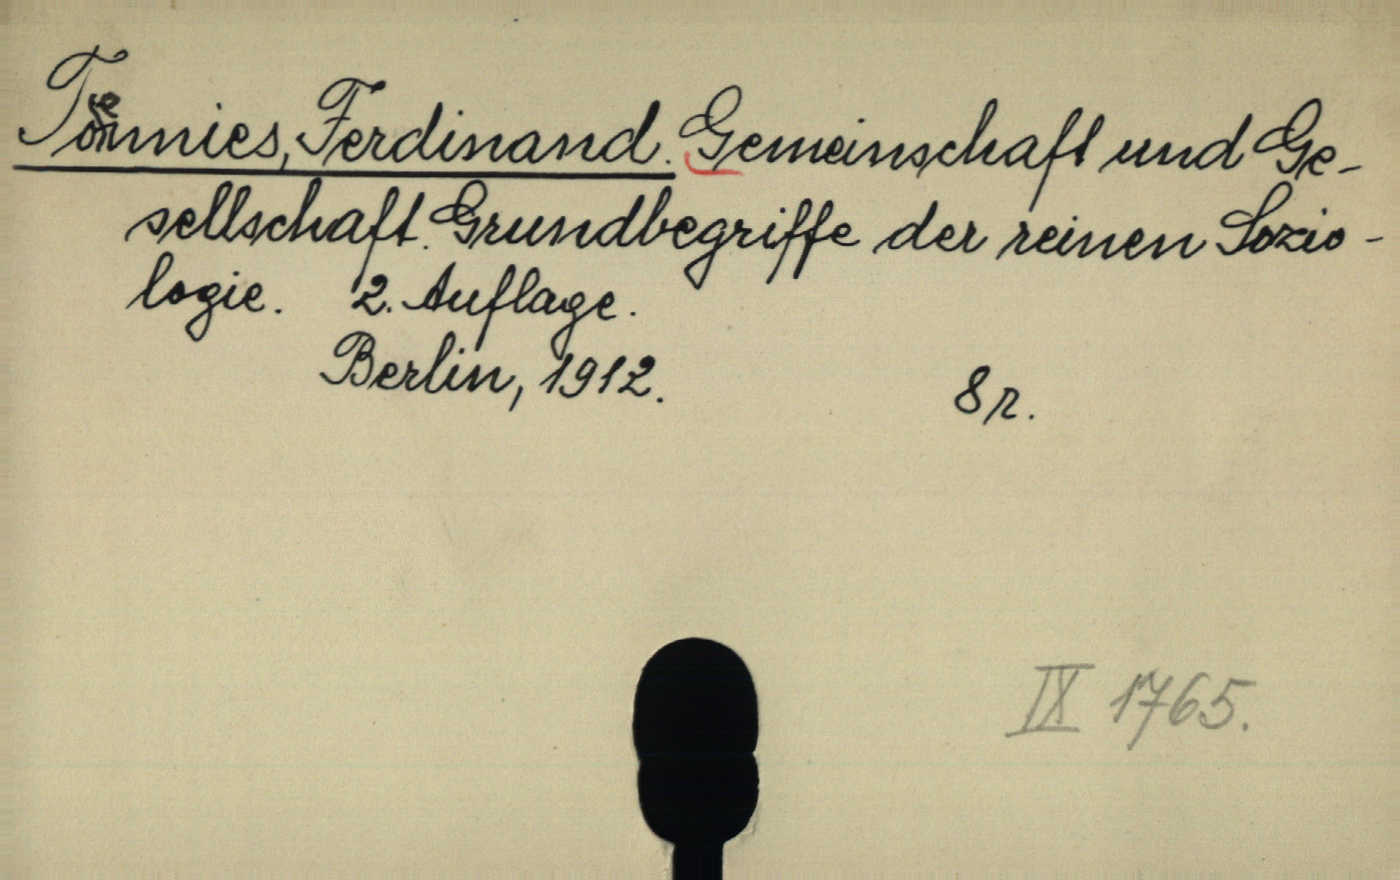 Toennies, Ferdinand. Gemeinschaft und Ge-
sellschaft. Grundbegriffe der reinen Sozio-
logie. 2. Auflage.
Berlin, 1912.
8r.
IX 1765.